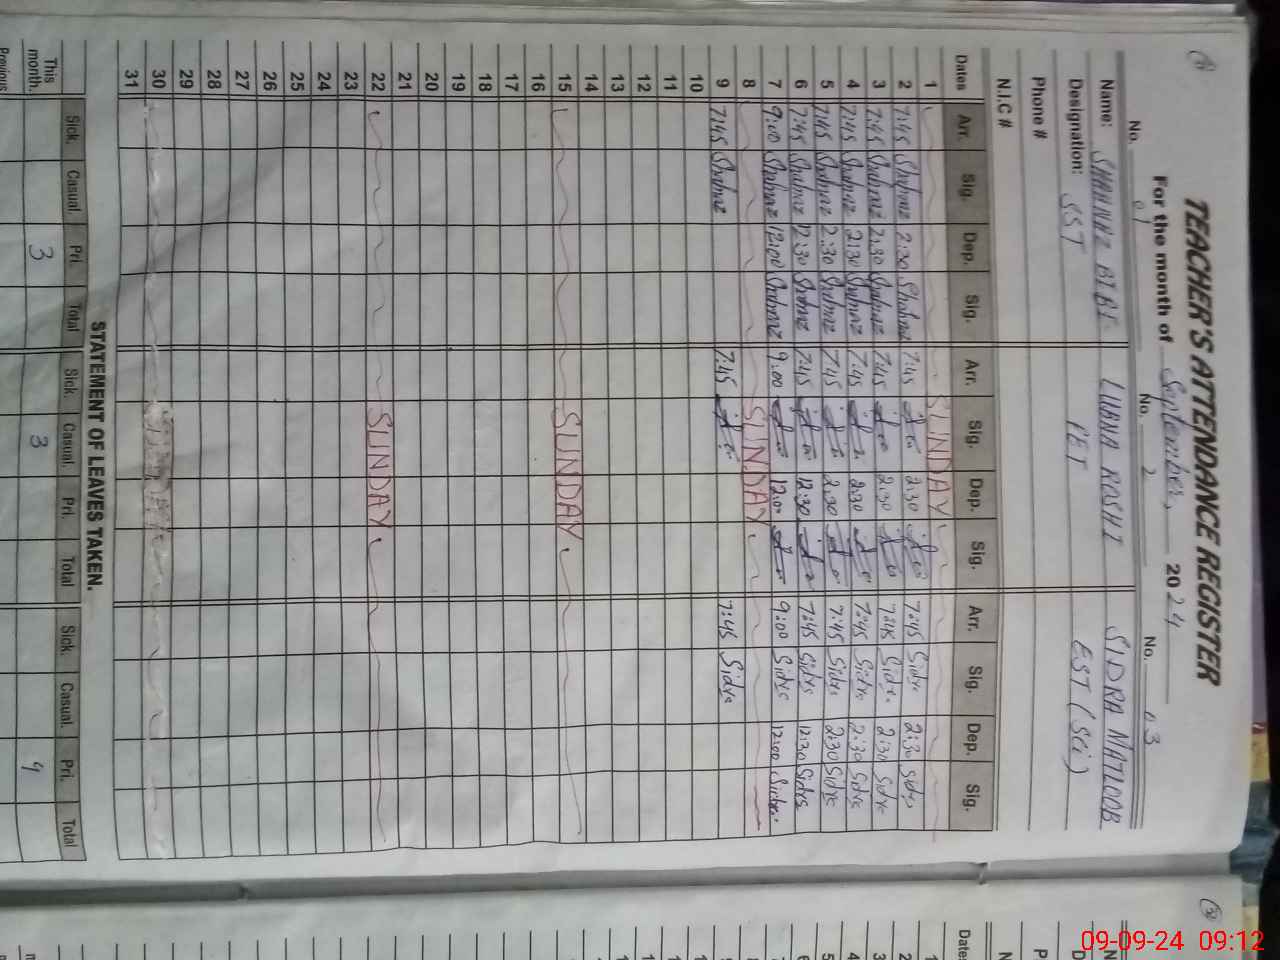 TEACHER'S ATTENDANCE REGISTER
For the month of September, 2024
No. 01 No. 2 No. 03
Name: SHAHNAZ BIBI LUBNA ROSHI SIDRA MATLOOB
Designation: SST PET EST (Sci)
Phone #
N.I.C #
Dates Arr. Sig. Dep. Sig. Arr. Sig. Dep. Sig. Arr. Sig. Dep. Sig.
1 SUNDAY
2 7:45 Shahnaz 2:30 Shahnaz 7:45 2:30 7:45 Sidra 2:30 Sidra
3 7:45 Shahnaz 2:30 Shahnaz 7:45 2:30 7:45 Sidra 2:30 Sidra
4 7:45 Shahnaz 2:30 Shahnaz 7:45 2:30 7:45 Sidra 2:30 Sidra
5 7:45 Shahnaz 2:30 Shahnaz 7:45 2:30 7:45 Sidra 2:30 Sidra
6 7:45 Shahnaz 12:30 Shahnaz 7:45 12:30 7:45 Sidra 12:30 Sidra
7 9:00 Shahnaz 12:00 Shahnaz 9:00 12:0 9:00 Sidra 12:00 Sidra
8 SUNDAY
9 7:45 Shahnaz 7:45 7:45 Sidra
10
11
12
13
14
15 SUNDAY
16
17
18
19
20
21
22 SUNDAY
23
24
25
26
27
28
29
30
31
STATEMENT OF LEAVES TAKEN.
Sick. Casual. Pri. Total Sick. Casual. Pri. Total Sick. Casual. Pri. Total
This month. 3 3 4
Previous
Dates
1
2
09-09-24 09:12